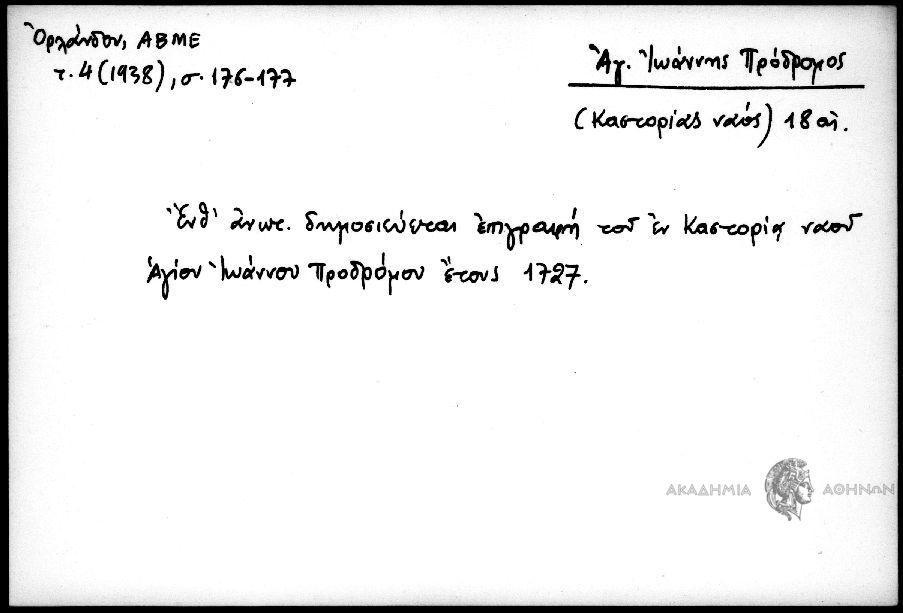 Ὀρλάνδου, ΑΒΜΕ
τ. 4 (1938), σ. 176-177
Ἁγ. Ἰωάννης Πρόδρομος
(Καστορίας ναός) 18 αἰ.
Ἔνθ' ἀνωτ. δημοσιεύεται ἐπιγραφή τοῦ ἐν Καστορίᾳ ναοῦ
Ἁγίου Ἰωάννου Προδρόμου ἔτους 1727.
ΑΚΑΔΗΜΙΑ ΑΘΗΝΩΝ